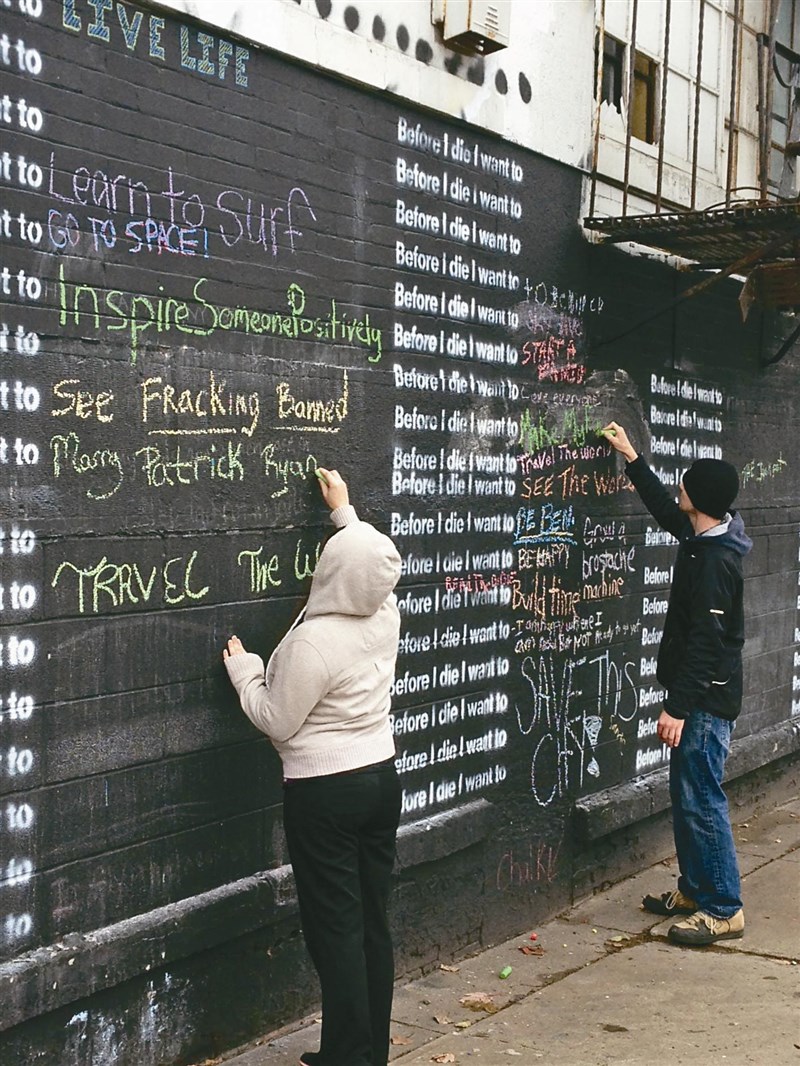 LIVE LIFE
t to
nt to
nt to Learn to Surf
t to GO TO SPACE!
t to Inspire Someone Positively
to
t to See Fracking Banned
t to Marry Patrick Ryan
to
to TRAVEL The W
to
to
to
to
to
to
Before I die I want to
Before I die I want to
Before I die I want to
Before I die I want to
Before I die I want to
Before I die I want to START A
Before I die I want to Love everyone
Before I die I want to Make
Before I die I want to Travel The World
Before I die I want to SEE The World
Before I die I want to BE BEN
Before I die I want to BE HAPPY
Grow a brostache
Before I die I want to Build time machine
Before I die I want to I am happy where I am
But NOT Ready to go yet
Before I die I want to SAVE THIS CITY!
Before I die I want to
Before I die I want to
Before I die I want to
Chalk
Before I die I want to
Before I die I want to
Before I die I want to
Before I die
Before I
Before I
Before
Before
Before
Before I
Before I